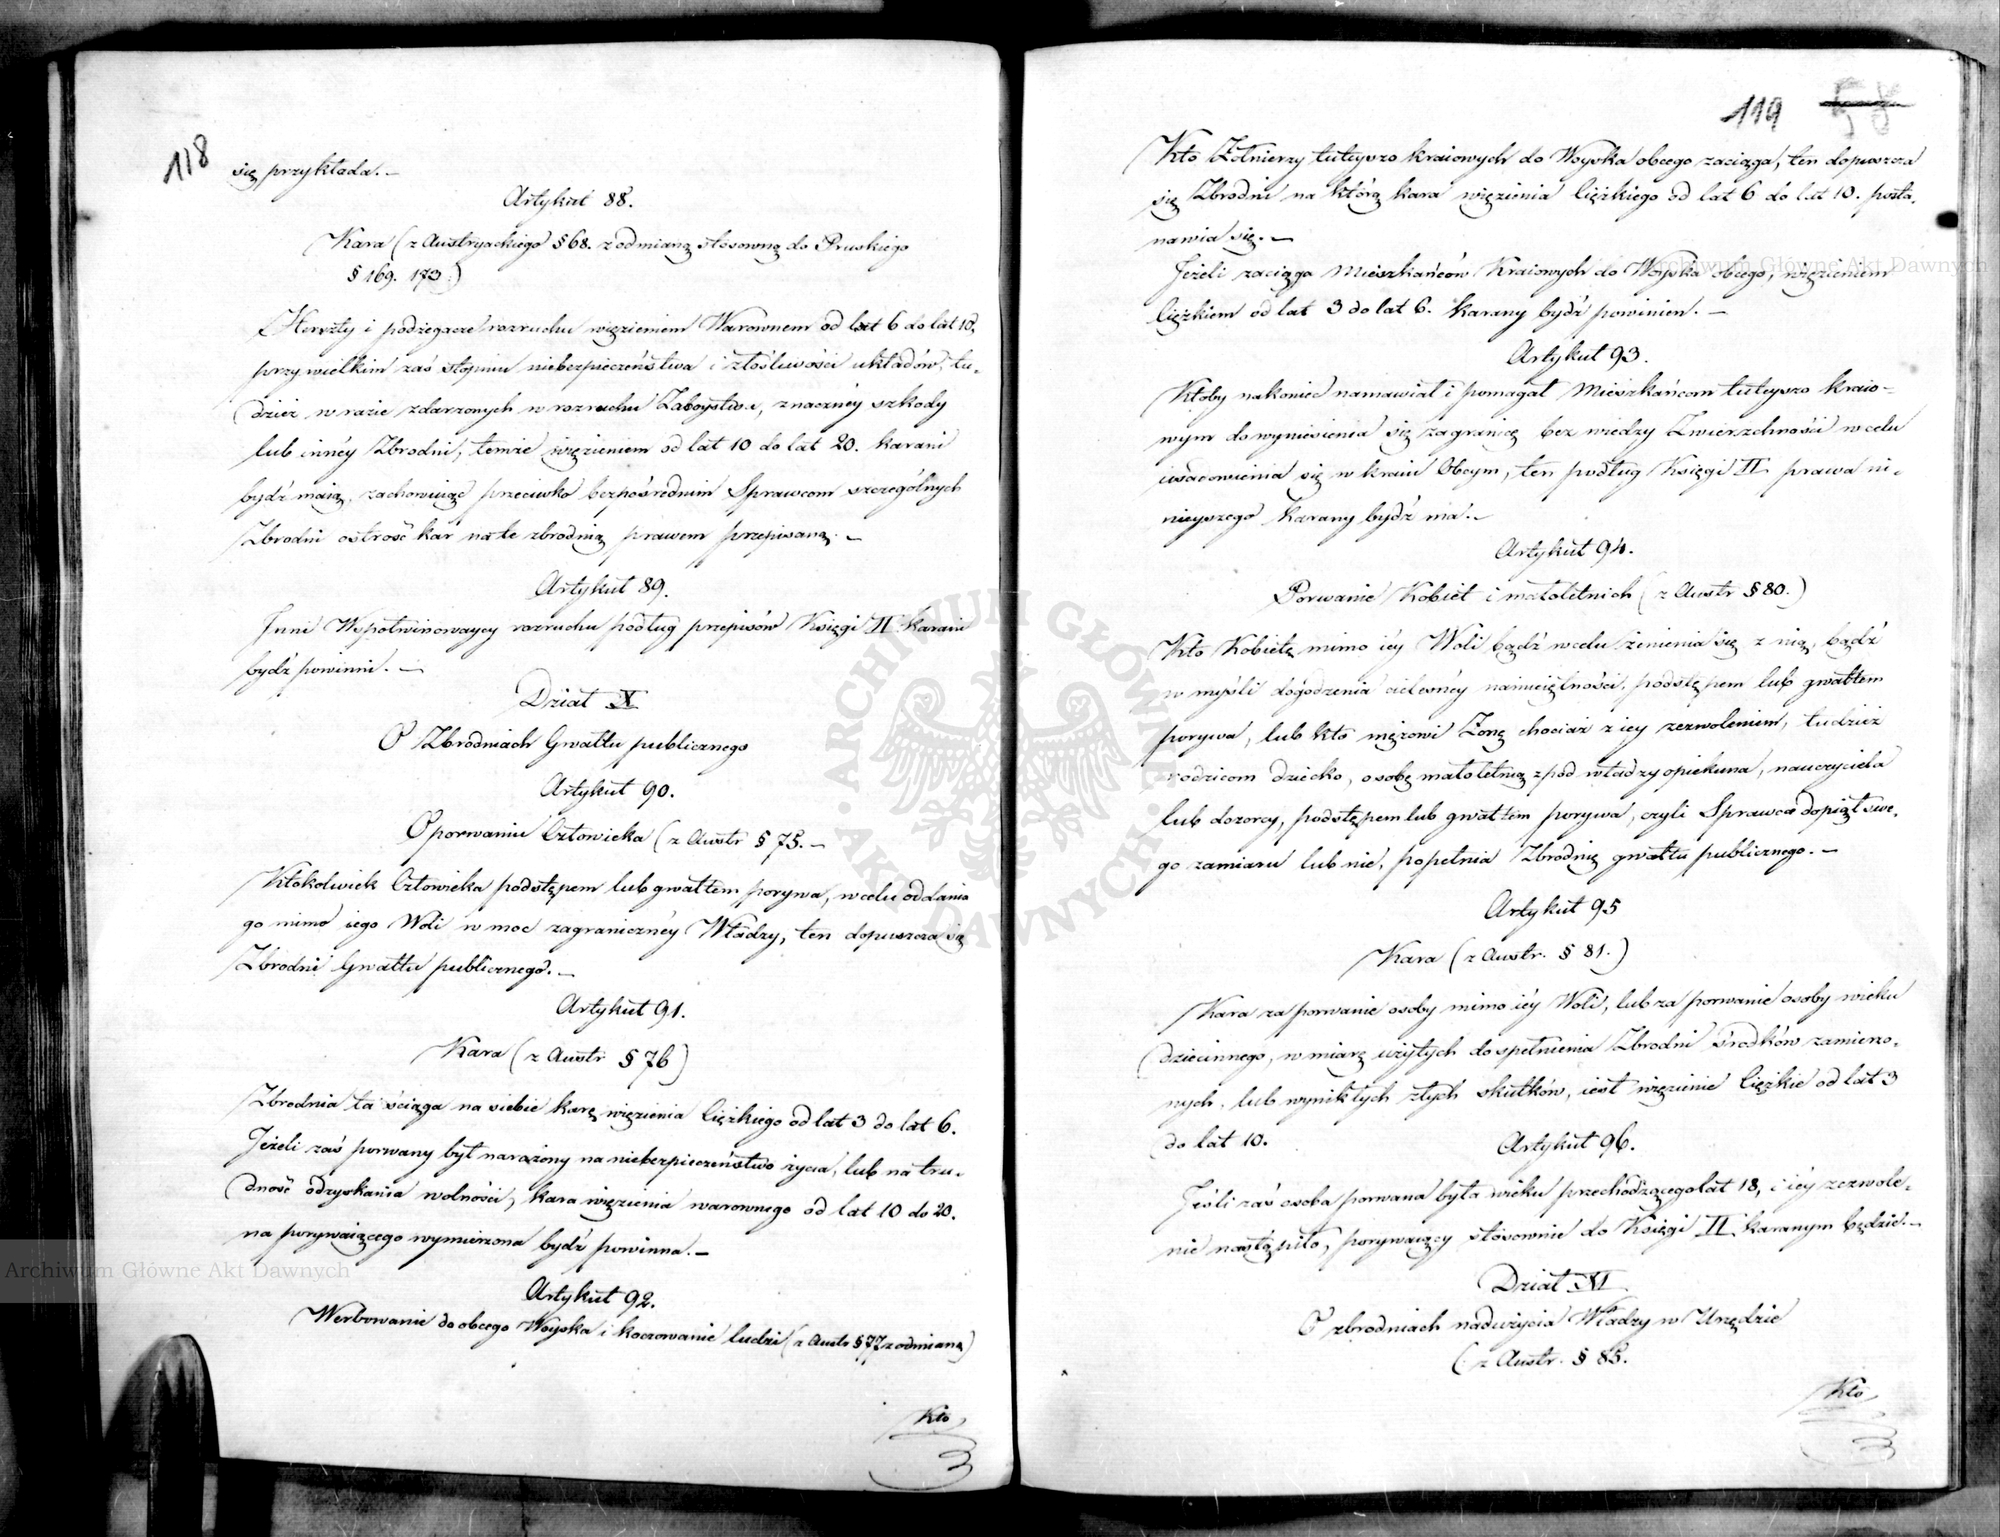 118
się przykłada. –
Artykuł 88.
Kara (z Austryackiego § 68. z odmianą stosowną do Pruskiego
§ 169. 173.)
Herszty i podżegacze rozruchu więzieniem Warownem od lat 6 do lat 10,
przy wielkim zaś stopniu niebezpieczeństwa i złośliwości układów, tu-
dzież w razie zdarzonych w rozruchu Zaboystw, znacznéy szkody
lub innéy Zbrodni, temże więzieniem od lat 10 do lat 20. karani
bydź maią, zachowuiąc przeciwko bezpośrednim Sprawcom szczególnych
Zbrodni ostrość kar na te zbrodnią prawem przepisaną. –
Artykuł 89.
Inni Wspołwinowaycy rozruchu podług przepisów Księgi II karani
bydź powinni. –
Dział X
O Zbrodniach Gwałtu publicznego
Artykuł 90.
O porwaniu Człowieka (z Austr § 75. –
Ktokolwiek Człowieka podstępem lub gwałtem porywa, w celu oddania
go mimo iego Woli w moc zagranicznéy Władzy, ten dopuszcza się
Zbrodni Gwałtu publicznego. –
Artykuł 91.
Kara (z Austr § 76)
Zbrodnia ta ściąga na siebie karę więzienia Ciężkiego od lat 3 do lat 6.
Jeżeli zaś porwany był narażony na niebezpieczeństwo życia, lub na tru-
dność odzyskania wolności, kara więzienia warownego od lat 10 do 20.
na porywaiącego wymierzona bydź powinna. –
Artykuł 92.
Werbowanie do obcego Woyska i koczowanie ludzi (z Austr § 77 z odmianą)
Kto
119 58
Kto Żołnierzy tuteyszo kraiowych do Woyska obcego zaciąga, ten dopuszcza
się Zbrodni na którą kara więzienia Ciężkiego od lat 6 do lat 10. posta-
nawia się. –
Jeżeli zaciąga Mieszkańców Kraiowych do Woyska obcego, więzieniem
Ciężkiem od lat 3 do lat 6. karany bydź powinien. –
Artykuł 93.
Ktoby nakoniec namawiał i pomagał Mieszkańcom tuteyszo kraio-
wym do wyniesienia się zagranicę bez wiedzy Zwierzchności w celu
usadowienia się w kraiu Obcym, ten podług Księgi II prawa ni-
nieyszego karany bydź ma. –
Artykuł 94.
Porwanie Kobiet i małoletnich (z Austr § 80.)
Kto Kobietę mimo iéy Woli bądź w celu żenienia się z nią, bądź
w myśli dogodzenia cielesnéy namiętności, podstępem lub gwałtem
porywa, lub kto mężowi Żonę chociaż z iey zezwoleniem, tudzież
rodzicom dziecko, osobę małoletnią zpod władzy opiekuna, nauczyciela
lub dozorcy, podstępem lub gwałtem porywa, czyli Sprawca dopiął swe-
go zamiaru lub nie, popełnia Zbrodnię gwałtu publicznego. –
Artykuł 95
Kara (z Austr. § 81.)
Kara za porwanie osoby mimo iéy Woli, lub za porwanie osoby wieku
dziecinnego, w miarę użytych do spełnienia Zbrodni środków zamierzo-
nych, lub wynikłych złych skutków, iest więzienie Ciężkie od lat 3
do lat 10.
Artykuł 96.
Jeśli zaś osoba porwana była wieku przechodzącego lat 18, i iéy zezwole-
nie nastąpiło, porywaiący stósownie do Księgi II karanym będzie. –
Dział XI
O zbrodniach nadużycia Władzy w Urzędzie
(z Austr. § 85.
Kto
Archiwum Główne Akt Dawnych
Archiwum Główne Akt Dawnych
ARCHIWUM GŁÓWNE AKT DAWNYCH